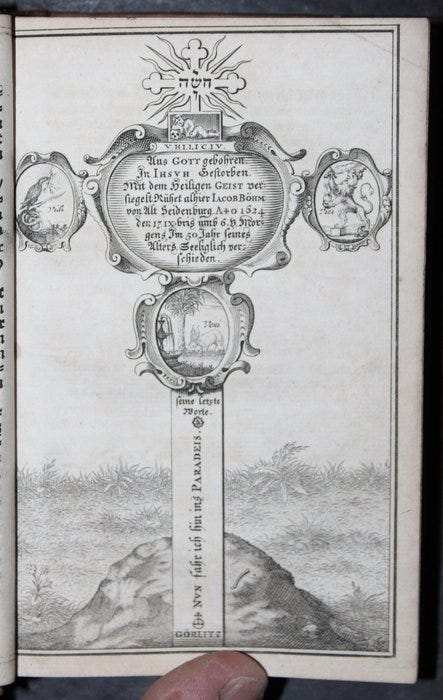 השה
V.HILICIV.
Aus GOTT gebohren
In IHSVH Gestorben.
Mit dem Heiligen GEIST ver
siegelt Rühet alhier IACOB BÖHM
von Alt Seidenburg. A+o 1624
den 17 IX-bris umb 6. V. Mor-
gens Im 50 Jahr seines
Alters Seeliglich ver-
schieden.
Vidi
Vici
Veni
seine letzte
Worte.
NVN fahr ich hin ins PARADEIS.
GÖRLITZ